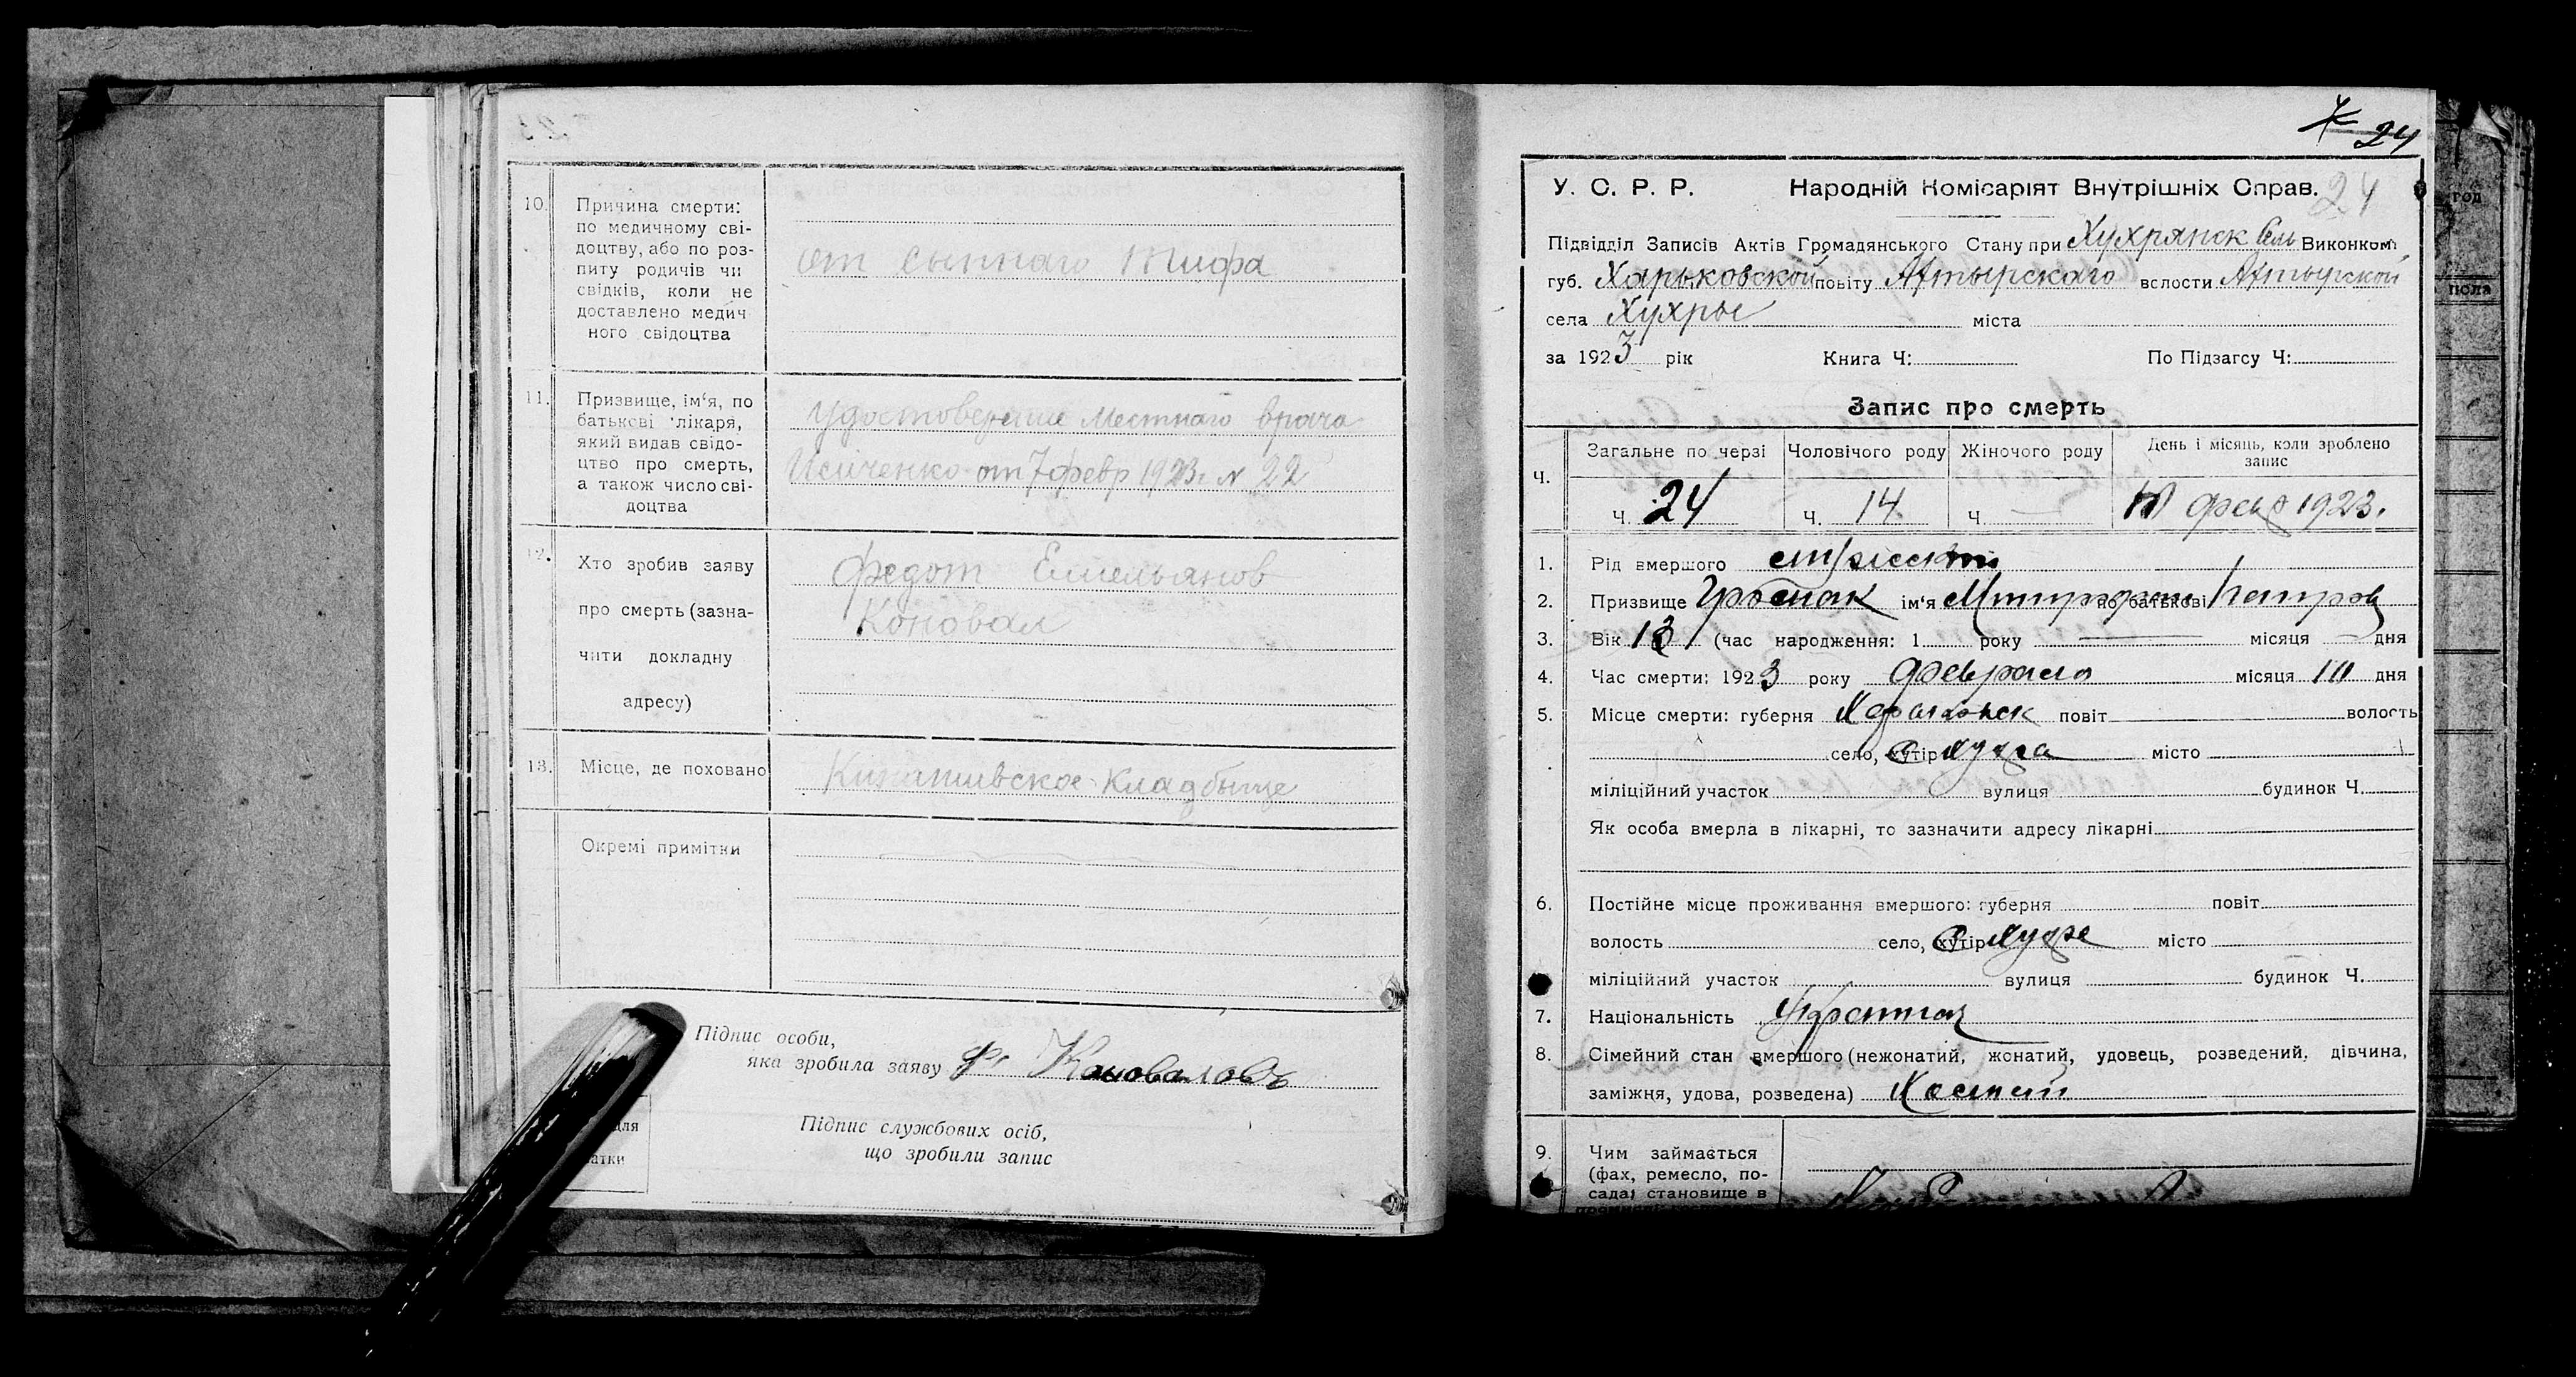 10.
Причина смерти:
по медичному сві-
доцтву, або по роз-
питу родичів чи
свідків, коли не
доставлено медич
ного свідоцтва
от сыпнаго тифа
11.
Призвище, ім'я, по
батькові лікаря,
який видав свідо-
цтво про смерть,
а також число сві-
доцтва
Удостоверение местнаго врача
от 7 февр 1923 г. № 22
12.
Хто зробив заяву
про смерть (зазна-
чити докладну
адресу)
Федот Емельянов
Коновал
13.
Місце, де поховано
кладбыще
Окремі примітки
Підпис особи,
яка зробила заяву Ф. Коноваловъ
Підпис службових осіб,
що зробили запис
для
атки
24
24
У. С. Р. Р. Народній Комісаріят Внутрішніх Справ.
Підвідділ Записів Актів Громадянського Стану при Хухрянск Сель Виконком
губ. Харьковской повіту Ахтырскаго волости Ахтырской
села Хухры міста
за 1923 рік Книга Ч: По Підзагсу Ч:
Запис про смерть
Ч.
Загальне по черзі Чоловічого роду Жіночого роду День і місяць, коли зроблено
запис
Ч. 24 Ч. 14 Ч. — 10 фев 1923.
1. Рід вмершого
2. Призвище ім'я по батькові Петров
3. Вік (час народження: 1 року місяця дня
4. Час смерти: 1923 року Февраля місяця 10 дня
5. Місце смерти: губерня повіт волость
село, хутір місто
міліційний участок вулиця будинок Ч.
Як особа вмерла в лікарні, то зазначити адресу лікарні
6. Постійне місце проживання вмершого: губерня повіт
волость село, хутір місто
міліційний участок вулиця будинок Ч.
7. Національність
8. Сімейний стан вмершого (нежонатий, жонатий, удовець, розведений, дівчина,
заміжня, удова, розведена)
9. Чим займається
(фах, ремесло, по-
сада, становище в
год
пола